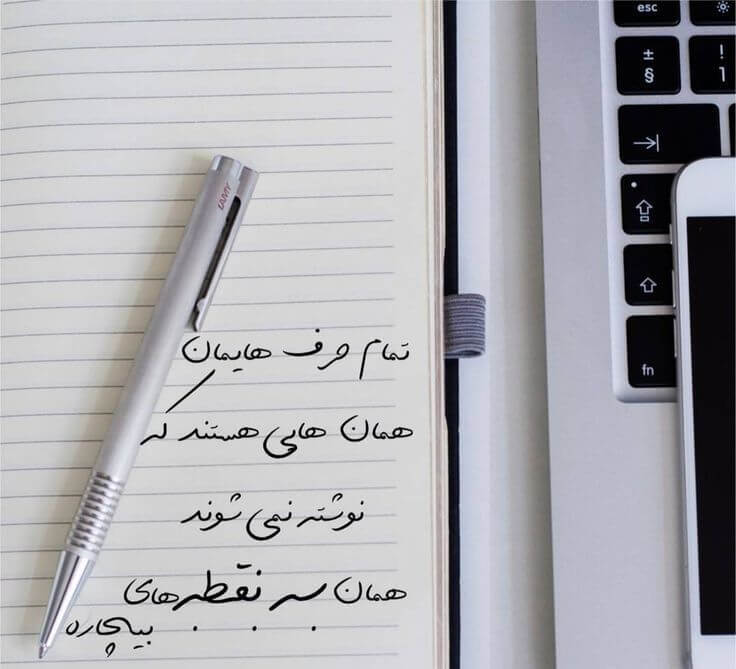 LAMY
تمام حرف هایمان
همان هایی هستند که
نوشته نمی شوند
همان سه نقطه های
بیچاره . . .
esc
±
§
!
1
fn